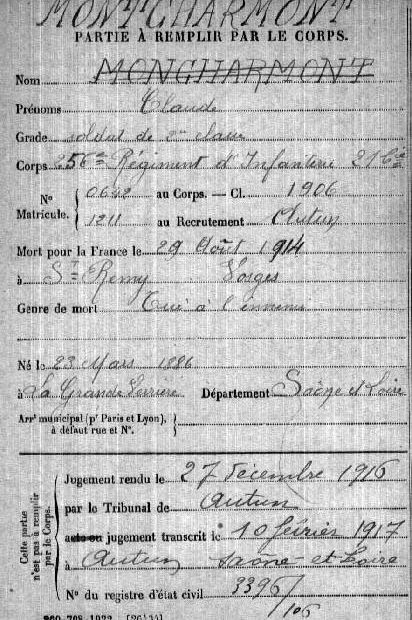 MONTCHARMONT
PARTIE À REMPLIR PAR LE CORPS.
Nom MONCHARMONT
Prénoms Claude
Grade soldat de 2me classe
Corps 256me Régiment d'Infanterie 21 Cie
N° Matricule. 0642 au Corps. — Cl. 1906
1211 au Recrutement Autun
Mort pour la France le 29 Août 1914
à St Remy Vosges
Genre de mort Tué à l'ennemi
Né le 23 Mars 1886
à La Grande Verrière Département Saône et Loire
Arrt municipal (pr Paris et Lyon),
à défaut rue et N°.
Cette partie
n'est pas à remplir
par le Corps.
Jugement rendu le 27 décembre 1916
par le Tribunal de Autun
acte ou jugement transcrit le 10 février 1917
à Autun Saône-et-Loire
N° du registre d'état civil 3396/
106